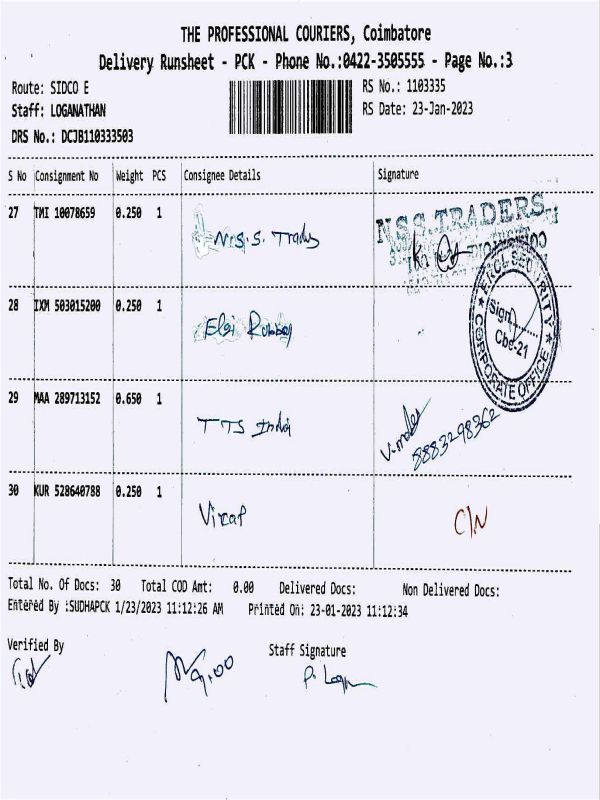 THE PROFESSIONAL COURIERS, Coimbatore
Delivery Runsheet - PCK - Phone No.:0422-3505555 - Page No.:3
Route: SIDCO E
RS No.: 1103335
Staff: LOGANATHAN
RS Date: 23-Jan-2023
DRS No.: DCJB110333503
S No Consignment No Weight PCS Consignee Details Signature
27 TMI 10078659 0.250 1 N.S.S. Traders
N.S.S.TRADERS
28 IXM 503015200 0.250 1 Elgi Rubber
ELGI SECURITY
Sign
Cbe-21
CORPORATE OFFICE
29 MAA 289713152 0.650 1 TTS India
8883298362
30 KUR 528640788 0.250 1 C/N
Total No. Of Docs: 30 Total COD Amt: 0.00 Delivered Docs: Non Delivered Docs:
Entered By :SUDHAPCK 1/23/2023 11:12:26 AM Printed On: 23-01-2023 11:12:34
Verified By
Staff Signature